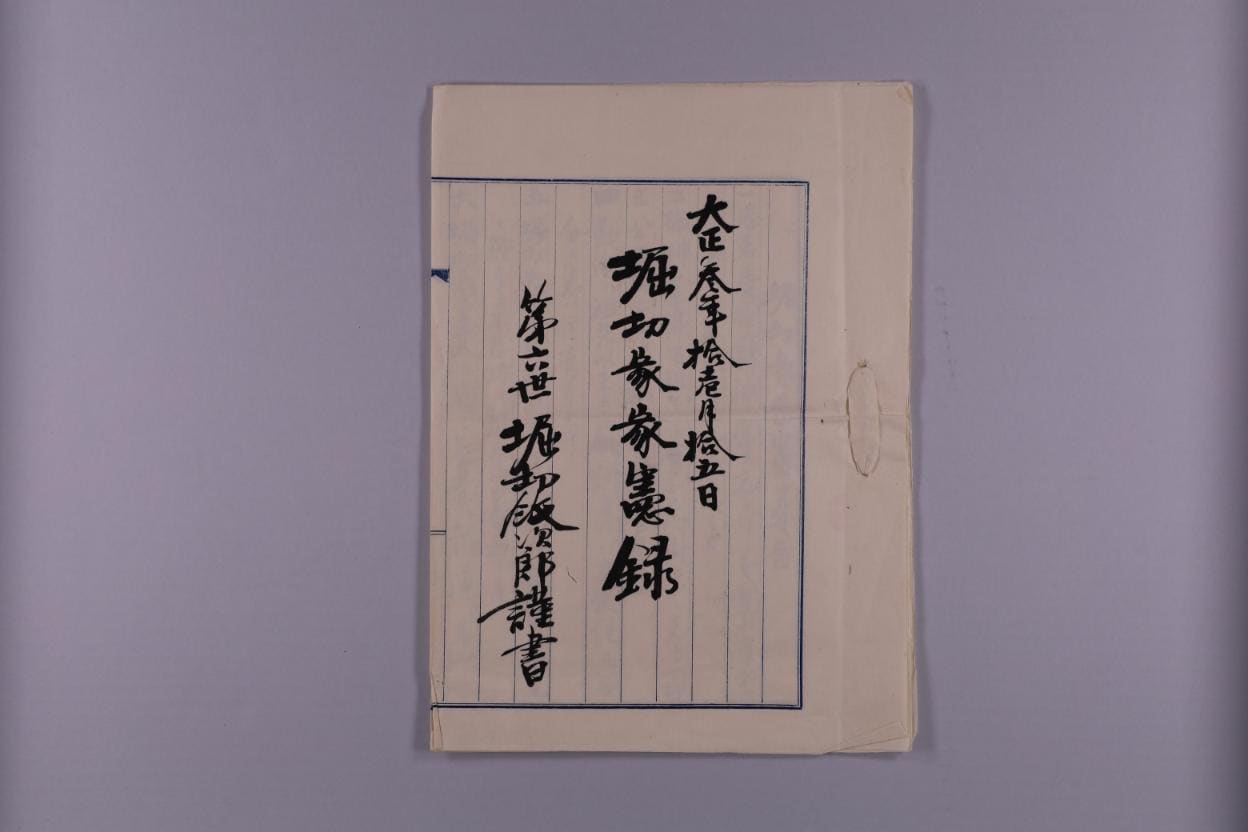 大正参年拾壱月拾五日
堀切家家憲録
第六世 堀切紋次郎謹書